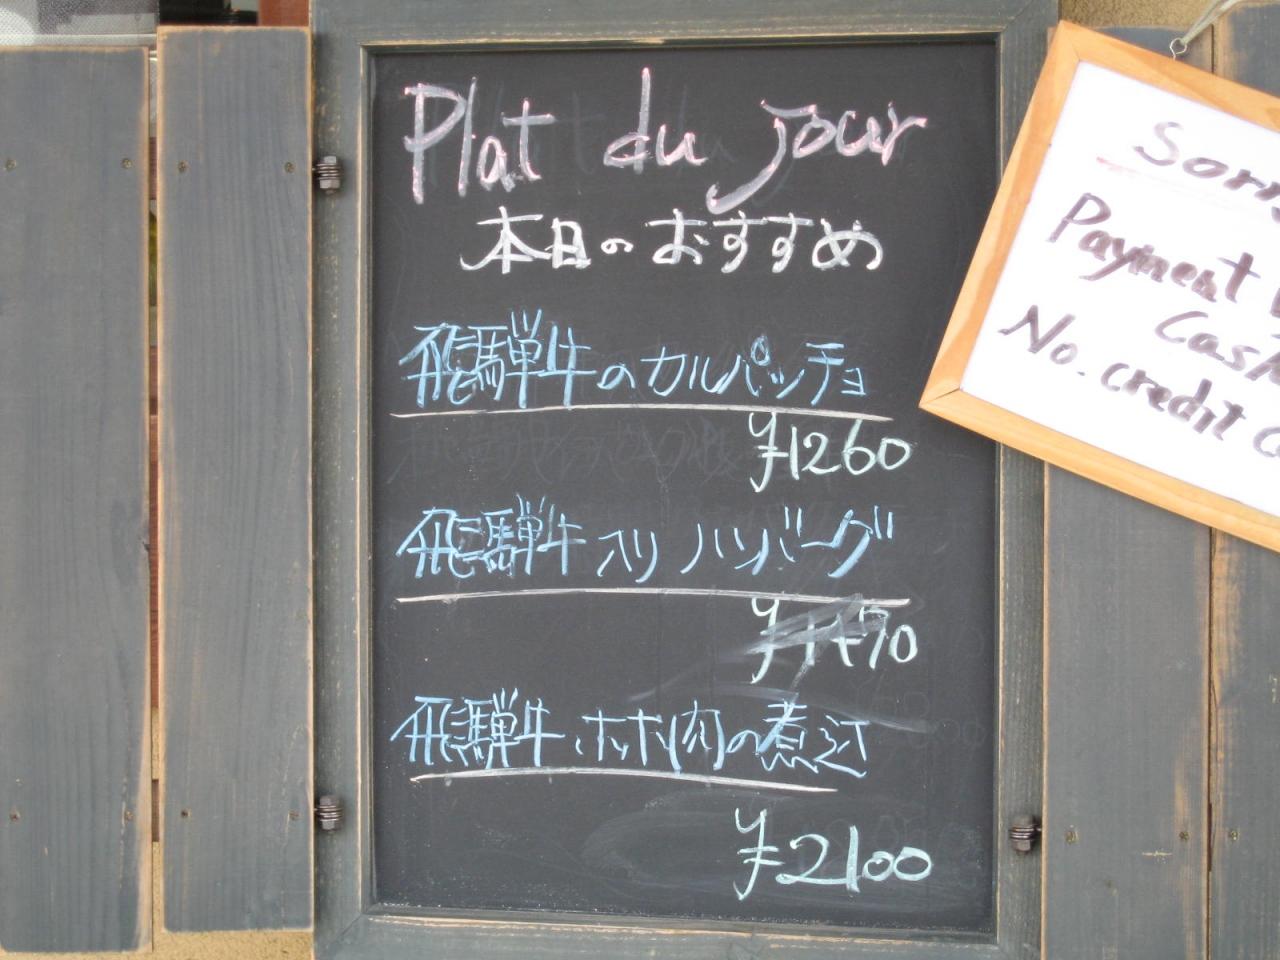 Plat du jour
本日のおすすめ
飛騨牛のカルパッチョ
¥1260
飛騨牛入リハンバーグ
¥1470
飛騨牛ホホ肉の煮込
¥2100
Sorry
Payment
Cash
No. credit